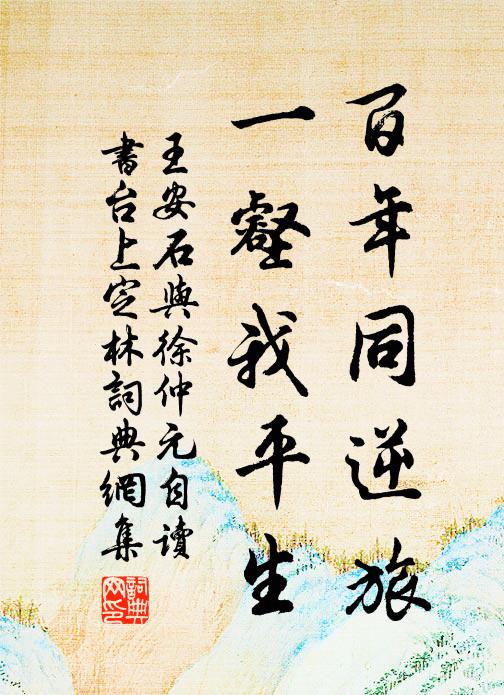 百年同逆旅
一壑我平生
王安石與徐仲元自读
書台上定林詞典網集
詞典網印